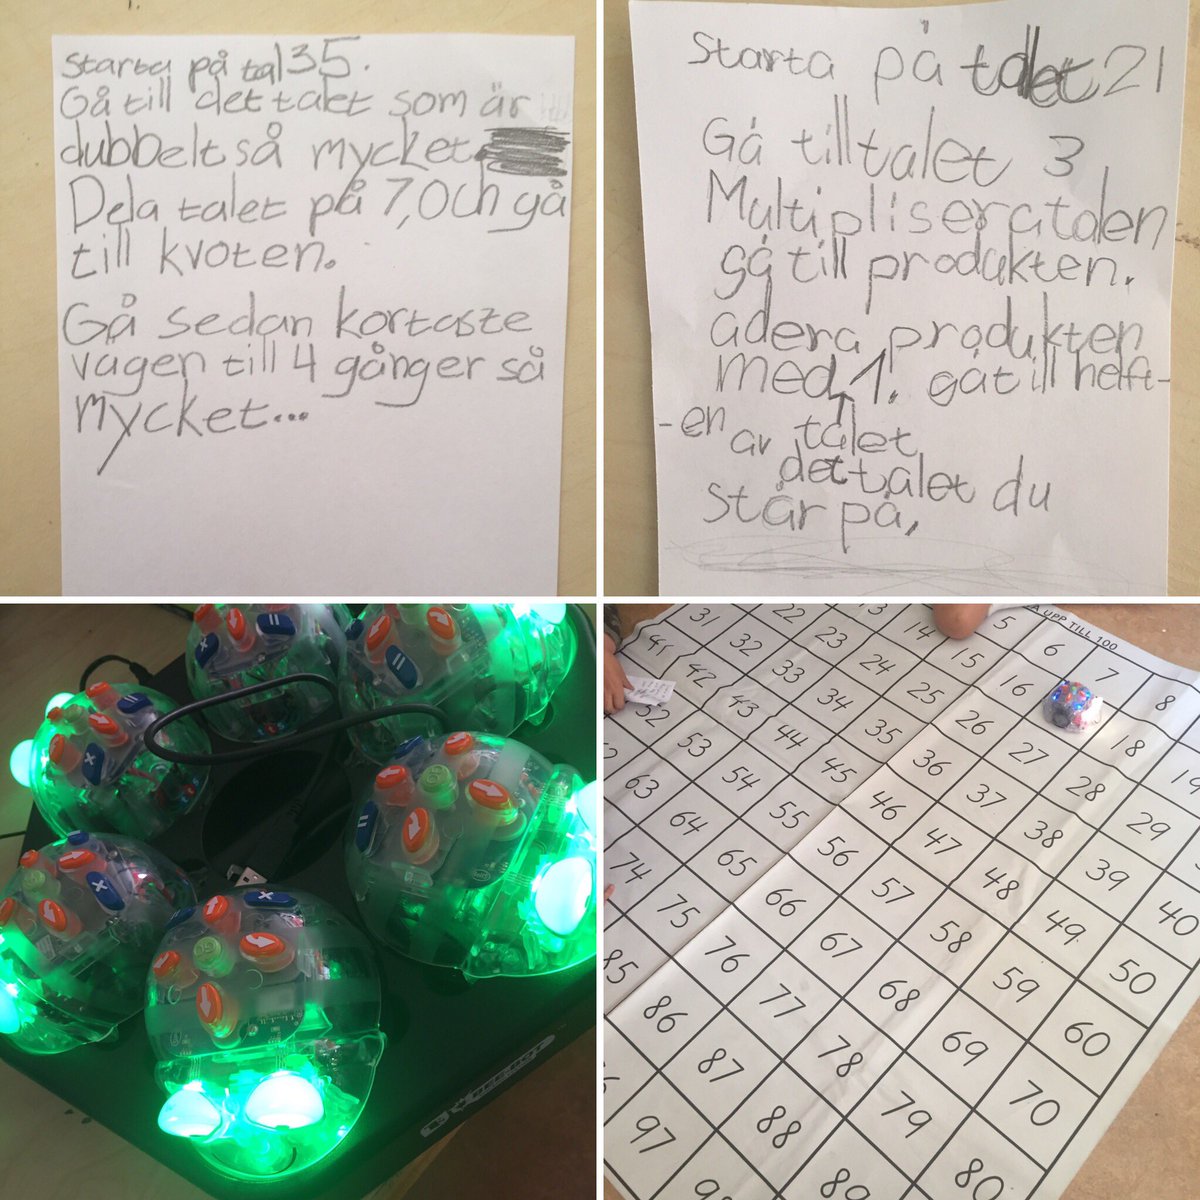 Starta på tal 35.
Gå till det talet som är
dubbelt så mycket
Dela talet på 7, och gå
till kvoten.
Gå sedan kortaste
vägen till 4 gånger så
mycket...
Starta på talet 21
Gå till talet 3
Multiplisera talen
gå till produkten.
adera produkten
med 1. gå till helft-
-en av talet
det talet du
står på,
UPP TILL 100
5 6 7 8
13 14 15 16 18 19
22 23 24 25 26 27 28 29
31 32 33 34 35 36 37 38 39 40
41 42 43 44 45 46 47 48 49 50
52 53 54 55 56 57 58 59 60
63 64 65 66 67 68 69 70
74 75 76 77 78 79 80
85 86 87 88 89
97